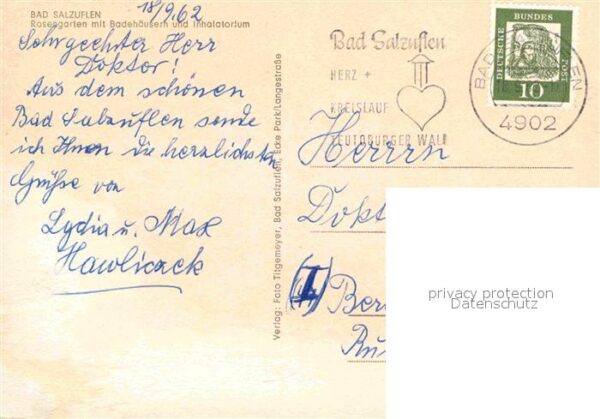 BAD SALZUFLEN
Rosengarten mit Badehäusern und Inhalatorium
18/9.62
Sehrgeehrter Herr
Doktor!
Aus dem schönen
Bad Salzuflen sende
ich Ihnen die herzlichsten
Grüße von
Lydia u. Max
Hawliczek
Verlag: Foto Titgemeyer, Bad Salzuflen, Ecke Park/Langestraße
Bad Salzuflen
HERZ +
KREISLAUF
TEUTOBURGER WALD
DEUTSCHE BUNDESPOST
10
4902
Herrrn
Dokt
(I) Ber
privacy protection
Datenschutz